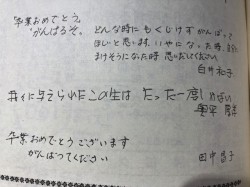 卒業おめでとう。
がんばるぞ。
どんな時にもくじけずがんばって
ほしいと思います。いやになった時、
まけそうになった時 思い出してください
白井和子
我々に与えられたこの生は たった一度しかない
卒業おめでとうございます
がんばってください
田中昌子